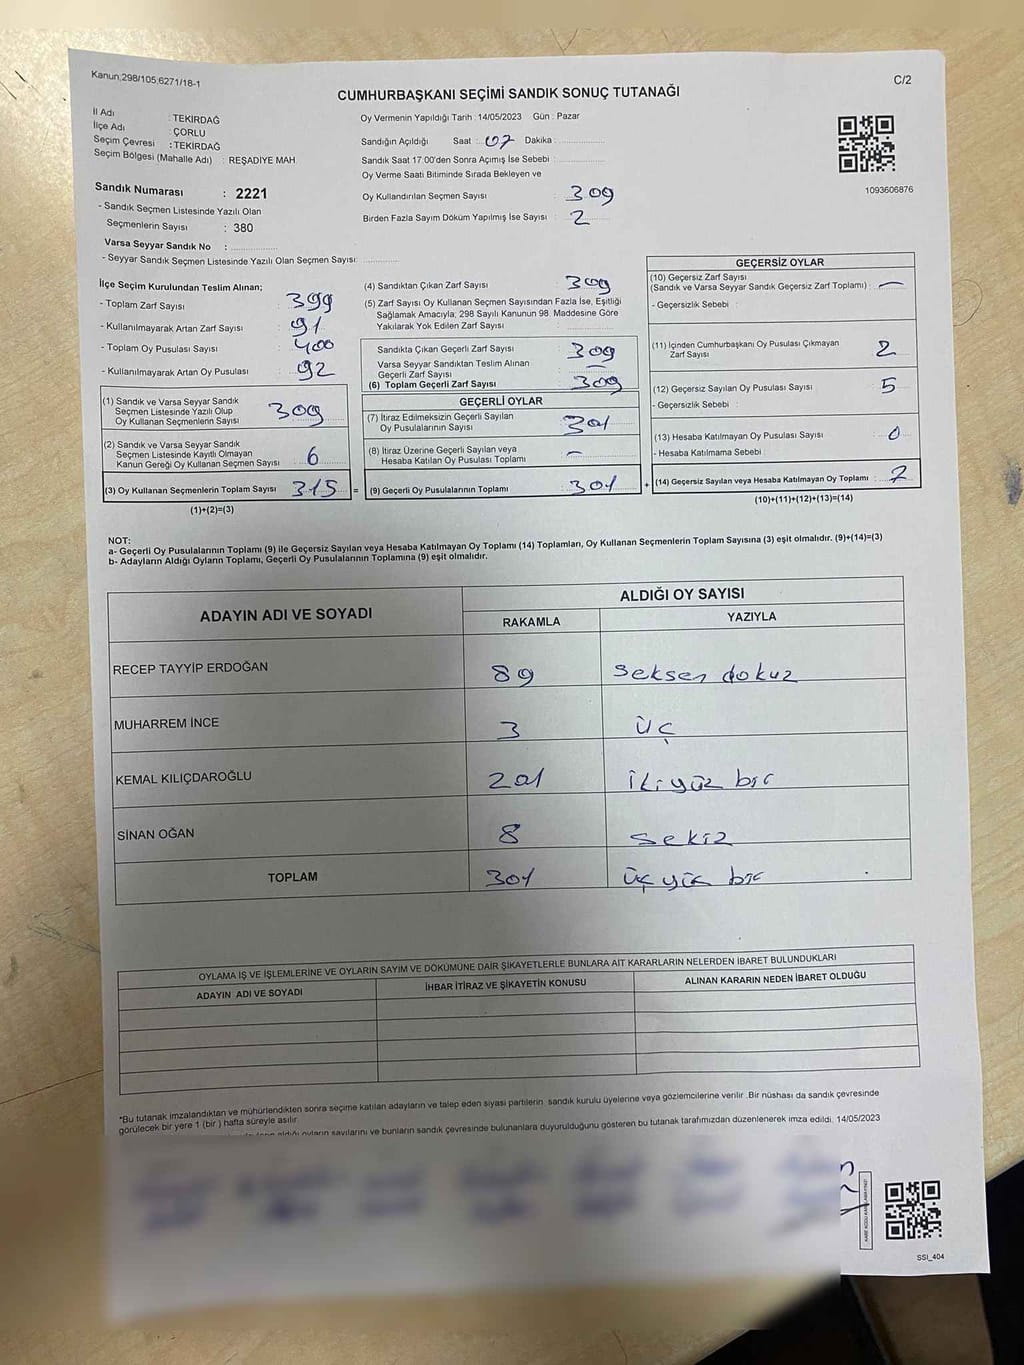 Kanun;298/105;6271/18-1
C/2
CUMHURBAŞKANI SEÇİMİ SANDIK SONUÇ TUTANAĞI
İl Adı : TEKİRDAĞ
İlçe Adı : ÇORLU
Seçim Çevresi : TEKİRDAĞ
Seçim Bölgesi (Mahalle Adı) : REŞADİYE MAH
Oy Vermenin Yapıldığı Tarih : 14/05/2023 Gün : Pazar
Sandığın Açıldığı Saat : 07 Dakika :
Sandık Saat 17:00'den Sonra Açımış İse Sebebi :
Oy Verme Saati Bitiminde Sırada Bekleyen ve
Oy Kullandırılan Seçmen Sayısı : 309
Birden Fazla Sayım Döküm Yapılmış İse Sayısı : 2
1093606876
Sandık Numarası : 2221
- Sandık Seçmen Listesinde Yazılı Olan
Seçmenlerin Sayısı : 380
Varsa Seyyar Sandık No :
- Seyyar Sandık Seçmen Listesinde Yazılı Olan Seçmen Sayısı:
İlçe Seçim Kurulundan Teslim Alınan;
- Toplam Zarf Sayısı : 399
- Kullanılmayarak Artan Zarf Sayısı : 91
- Toplam Oy Pusulası Sayısı : 400
- Kullanılmayarak Artan Oy Pusulası : 92
(1) Sandık ve Varsa Seyyar Sandık
Seçmen Listesinde Yazılı Olup
Oy Kullanan Seçmenlerin Sayısı : 309
(2) Sandık ve Varsa Seyyar Sandık
Seçmen Listesinde Kayıtlı Olmayan
Kanun Gereği Oy Kullanan Seçmen Sayısı : 6
(3) Oy Kullanan Seçmenlerin Toplam Sayısı : 315 =
(1)+(2)=(3)
(4) Sandıktan Çıkan Zarf Sayısı : 309
(5) Zarf Sayısı Oy Kullanan Seçmen Sayısından Fazla İse, Eşitliği
Sağlamak Amacıyla; 298 Sayılı Kanunun 98. Maddesine Göre
Yakılarak Yok Edilen Zarf Sayısı :
Sandıkta Çıkan Geçerli Zarf Sayısı : 309
Varsa Seyyar Sandıktan Teslim Alınan
Geçerli Zarf Sayısı : —
(6) Toplam Geçerli Zarf Sayısı : 309
GEÇERLİ OYLAR
(7) İtiraz Edilmeksizin Geçerli Sayılan
Oy Pusulalarının Sayısı : 301
(8) İtiraz Üzerine Geçerli Sayılan veya
Hesaba Katılan Oy Pusulası Toplamı : —
(9) Geçerli Oy Pusulalarının Toplamı : 301 +
GEÇERSİZ OYLAR
(10) Geçersiz Zarf Sayısı
(Sandık ve Varsa Seyyar Sandık Geçersiz Zarf Toplamı) : —
- Geçersizlik Sebebi :
(11) İçinden Cumhurbaşkanı Oy Pusulası Çıkmayan
Zarf Sayısı : 2
(12) Geçersiz Sayılan Oy Pusulası Sayısı : 5
- Geçersizlik Sebebi :
(13) Hesaba Katılmayan Oy Pusulası Sayısı : 0
- Hesaba Katılmama Sebebi :
(14) Geçersiz Sayılan veya Hesaba Katılmayan Oy Toplamı : 7
(10)+(11)+(12)+(13)=(14)
NOT:
a- Geçerli Oy Pusulalarının Toplamı (9) ile Geçersiz Sayılan veya Hesaba Katılmayan Oy Toplamı (14) Toplamları, Oy Kullanan Seçmenlerin Toplam Sayısına (3) eşit olmalıdır. (9)+(14)=(3)
b- Adayların Aldığı Oyların Toplamı, Geçerli Oy Pusulalarının Toplamına (9) eşit olmalıdır.
ADAYIN ADI VE SOYADI
ALDIĞI OY SAYISI
RAKAMLA YAZIYLA
RECEP TAYYİP ERDOĞAN 89 Seksen dokuz
MUHARREM İNCE 3 üç
KEMAL KILIÇDAROĞLU 201 iki yüz bir
SİNAN OĞAN 8 sekiz
TOPLAM 301 üç yüz bir
OYLAMA İŞ VE İŞLEMLERİNE VE OYLARIN SAYIM VE DÖKÜMÜNE DAİR ŞİKAYETLERLE BUNLARA AİT KARARLARIN NELERDEN İBARET BULUNDUKLARI
ADAYIN ADI VE SOYADI İHBAR İTİRAZ VE ŞİKAYETİN KONUSU ALINAN KARARIN NEDEN İBARET OLDUĞU
*Bu tutanak imzalandıktan ve mühürlendikten sonra seçime katılan adayların ve talep eden siyasi partilerin sandık kurulu üyelerine veya gözlemcilerine verilir .Bir nüshası da sandık çevresinde
görülecek bir yere 1 (bir ) hafta süreyle asılır.
aldığı oyların sayılarını ve bunların sandık çevresinde bulunanlara duyurulduğunu gösteren bu tutanak tarafımızdan düzenlenerek imza edildi. 14/05/2023
SSI_404